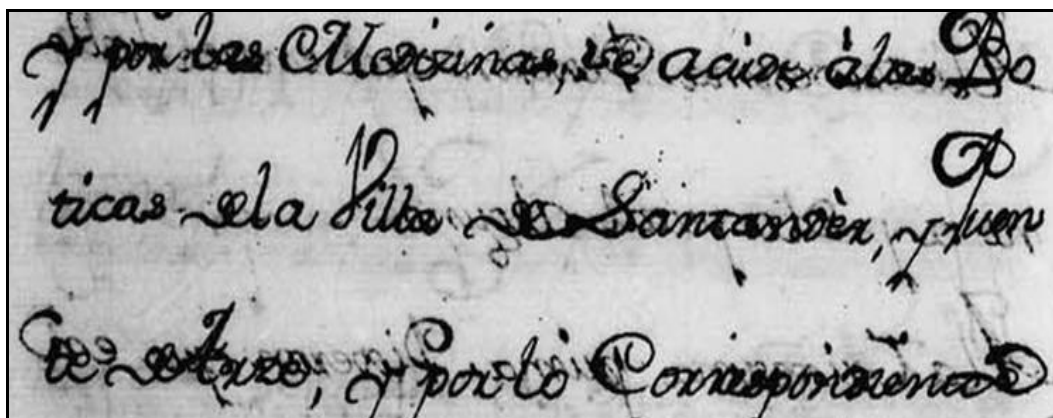 y por las Medizinas, se acude à las Bo
ticas de la Villa de Santandèr, y Puen
te de Arze, y por lò Correspondiente